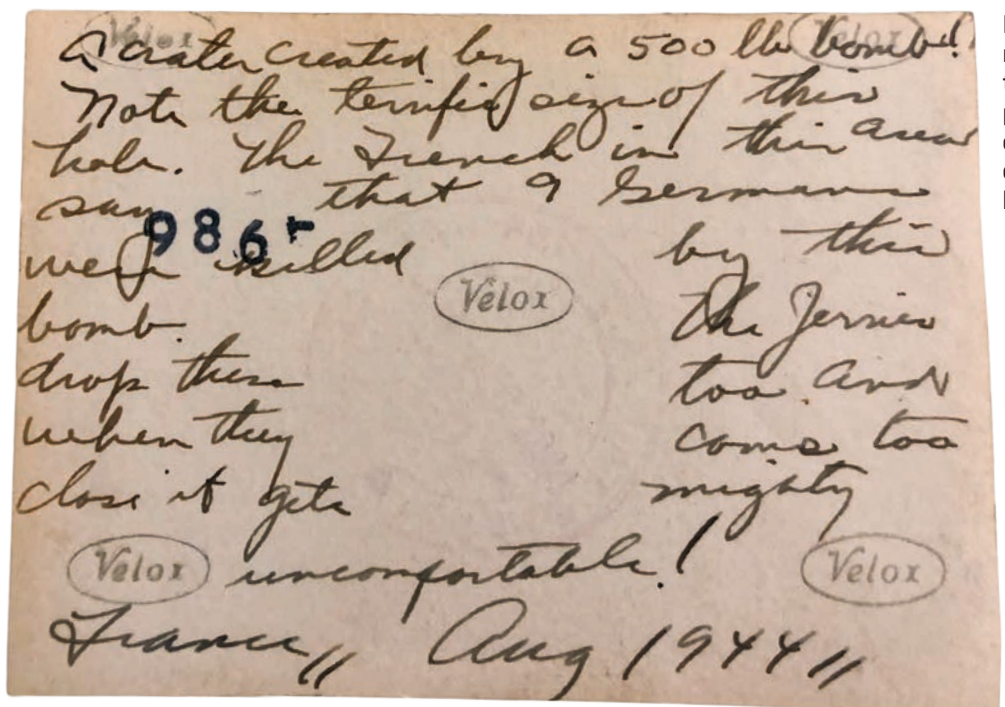 Velox Velox
A crater created by a 500 lb bomb!
Note the terrific size of this
hole. The French in this area
say that 9 Germans
986
were killed by this
Velox
bomb. The Jerries
drop these too. And
when they come too
close it gets mighty
Velox uncomfortable! Velox
France,, Aug 1944,,